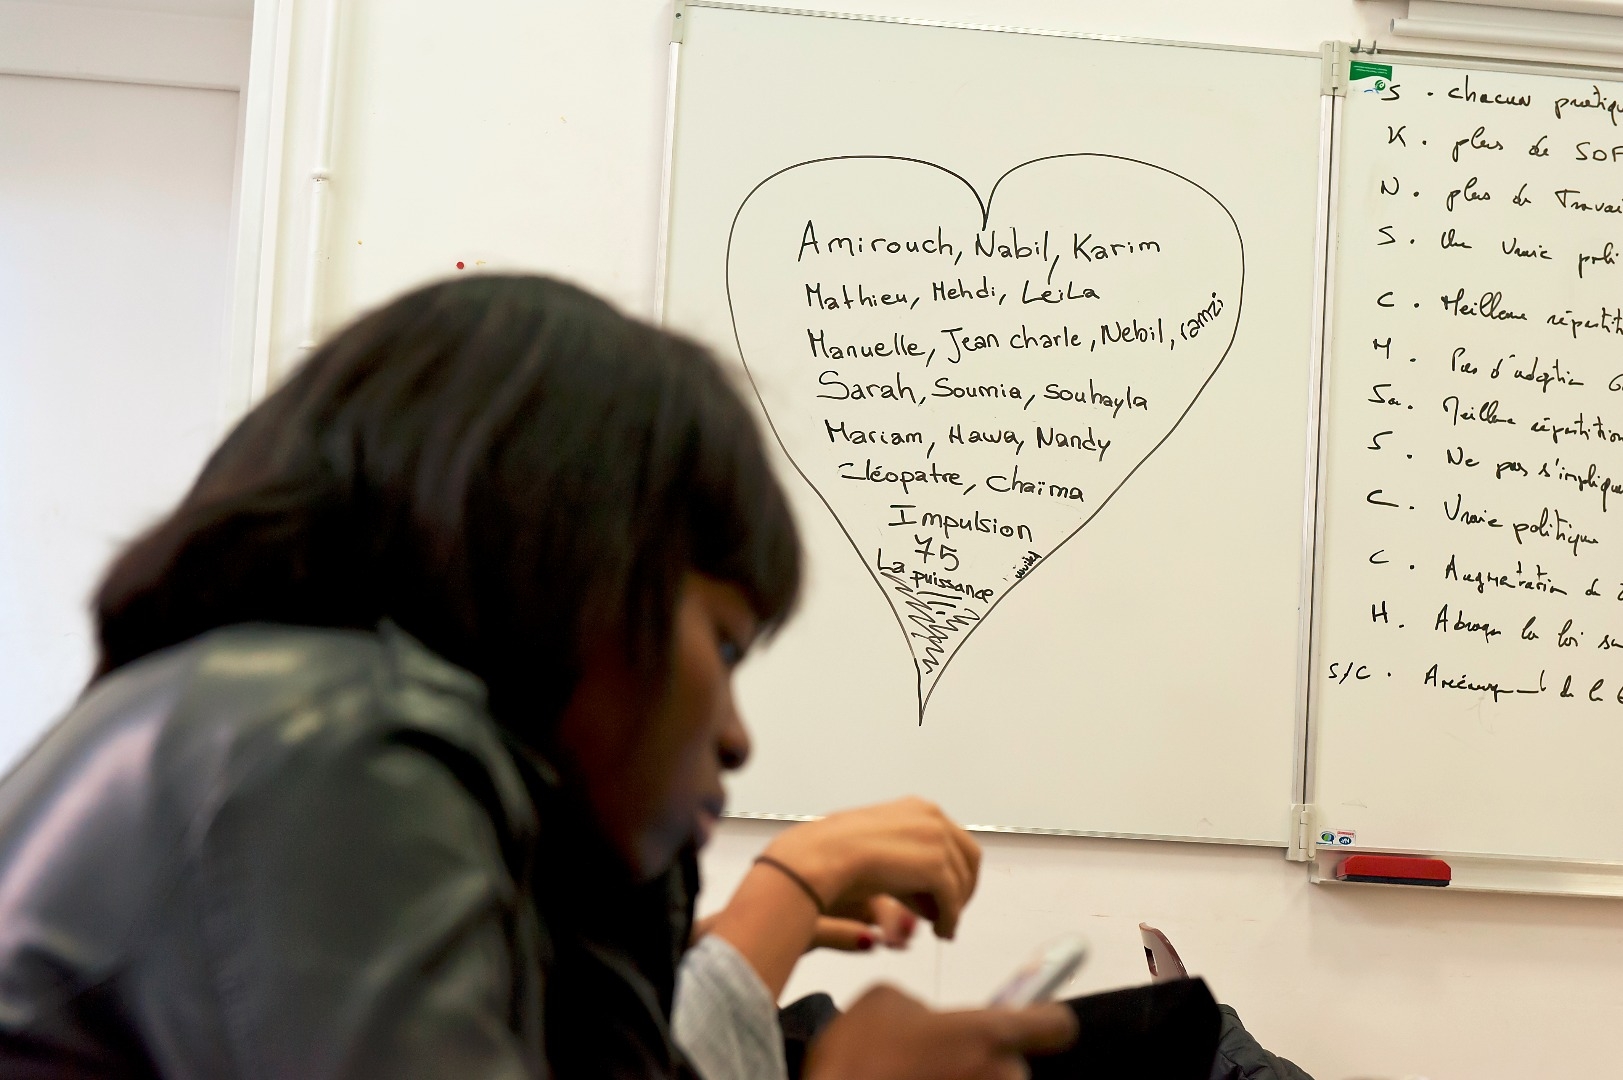 Amirouch, Nabil, Karim
Mathieu, Mehdi, LeiLa
Manuelle, Jean charle, Nebil, ramzi
Sarah, Soumia, Souhayla
Mariam, Hawa, Nandy
Cléopatre, Chaïma
Impulsion
75
La puissance
S. chacun pratiqu
K. plus de SOF
N. plus de Travai
S. Une vraie poli
C. Meilleure répartit
M. Pas d'adoption
Sa. Meilleure répartition
S. Ne pas s'impliqu
C. Vraie politique
C. Augmentation de
H. Abroger la loi su
S/C. de la